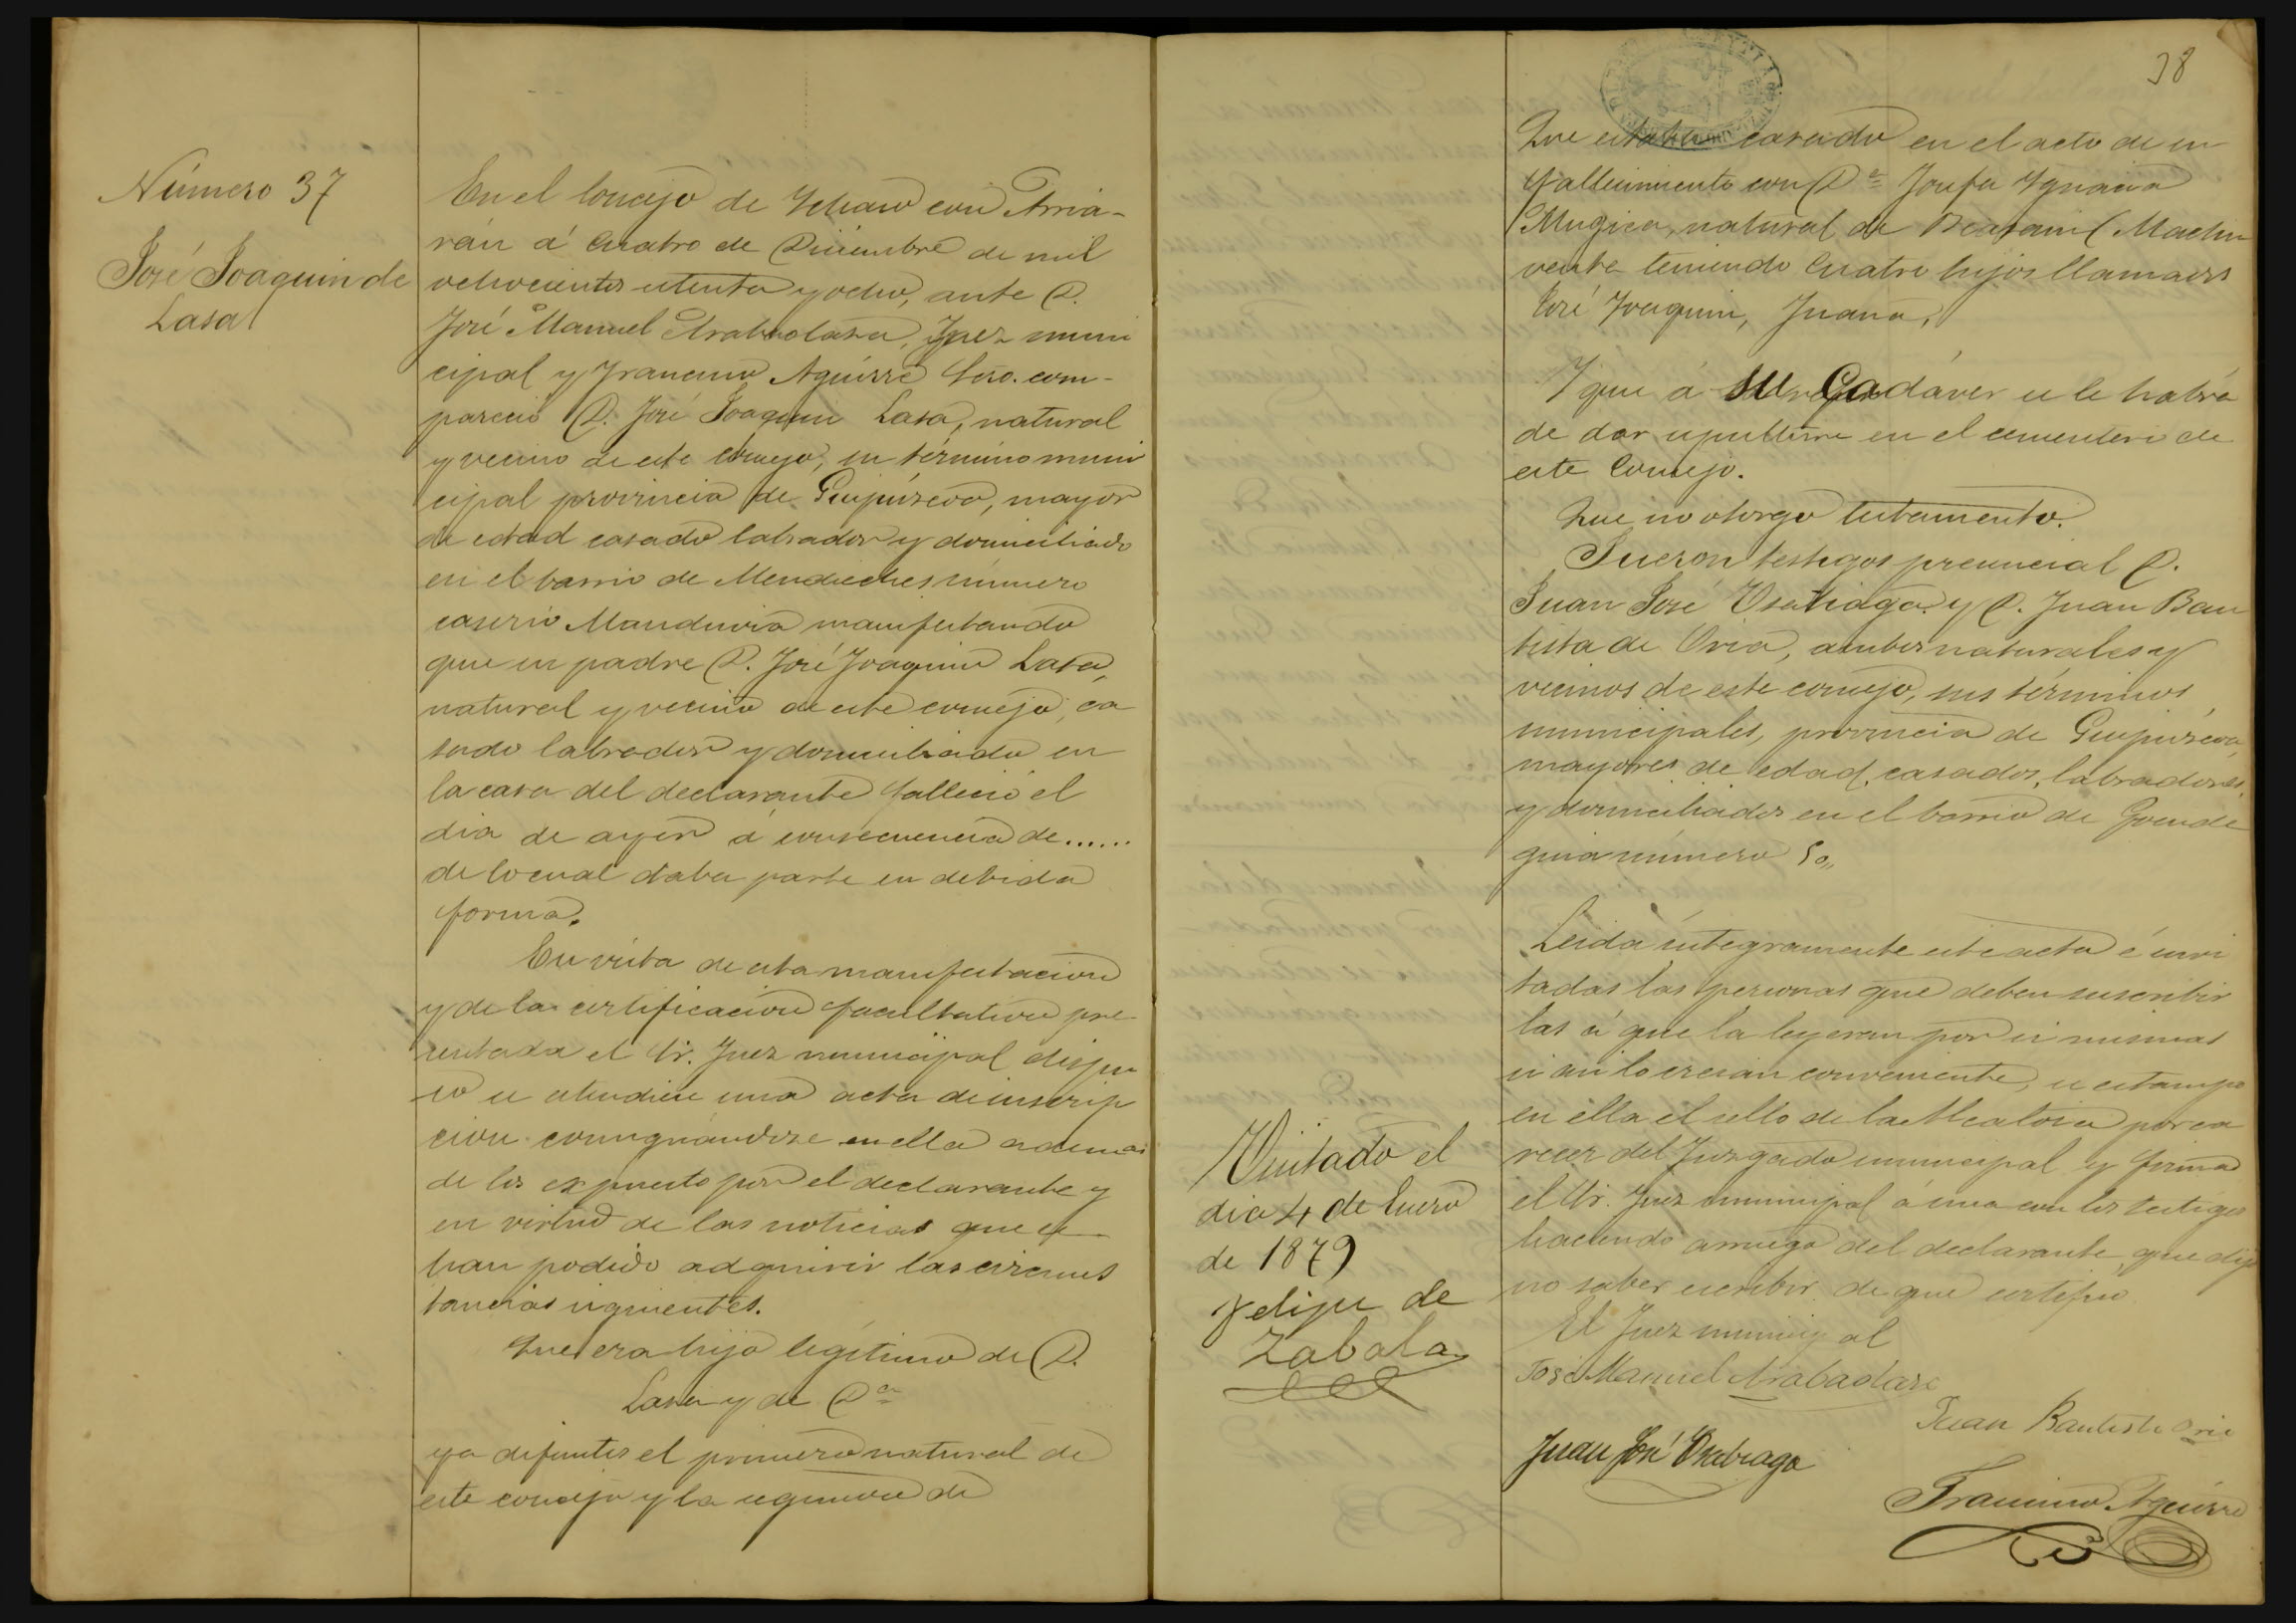 Número 37
José Joaquin de
Lasa
En el Concejo de Ichaso con Arria-
rán á cuatro de Diciembre de mil
ochocientos setenta y ocho, ante D.
José Manuel Arabaolaza, Juez muni
cipal y Francisco Aguirre Srio. com-
pareció D. José Joaquin Lasa, natural
y vecino de este concejo, su término muni
cipal provincia de Guipúzcoa, mayor
de edad casado labrador y domiciliado
en el barrio de número
caserio manifestando
que su padre D. José Joaquin Lasa,
natural y vecino de este concejo, ca
sado labrador y domiciliado en
la casa del declarante falleció el
dia de ayer á consecuencia de......
de lo cual daba parte en debida
forma.
En vista de esta manifestacion
y de la certificacion facultativa pre-
sentada el Sr. Juez municipal dispu
so se estendiese una acta de inscrip
cion consignandose en ella ademas
de los expuesto por el declarante y
en virtud de las noticias que se
han podido adquirir las circuns
tancias siguientes.
Que era hijo legítimo de D.
Lasa y de Dª
ya difuntos el primero natural de
este concejo y la segunda de
38
Que estaba casado en el acto de su
fallecimiento con Dª Josefa Ygnacia
Mugica, natural de Beasain (Machin
vente teniendo cuatro hijos llamados
José Joaquin, Juana,
Y que á su Cadáver se le habrá
de dar sepultura en el cementerio de
este Concejo.
Que no otorgó testamento.
Fueron testigos presencial D.
Juan José Usabiaga y D. Juan Bau
tista de Oria, ambos naturales y
vecinos de este concejo, sus términos
municipales, provincia de Guipúzcoa,
mayores de edad, casados, labradores,
y domiciliados en el barrio de Goende
guia número 50,,
Leida íntegramente este acta é invi
tadas las personas que deben suscribir
las á que la leyeran por si mismas
si asi lo creian conveniente, se estampó
en ella el sello de la Alcaldia por ca
recer del Juzgado municipal y firma
el Sr. Juez municipal á una con los testigos
haciendo á ruego del declarante, que dijo
no saber escribir de que certifico.
El Juez municipal
José Manuel Arabaolaza
Juan Bautista Oria
Juan José Usabiaga
Francisco Aguirre
Visitado el
dia 4 de Enero
de 1879
Felipe de
Zabala